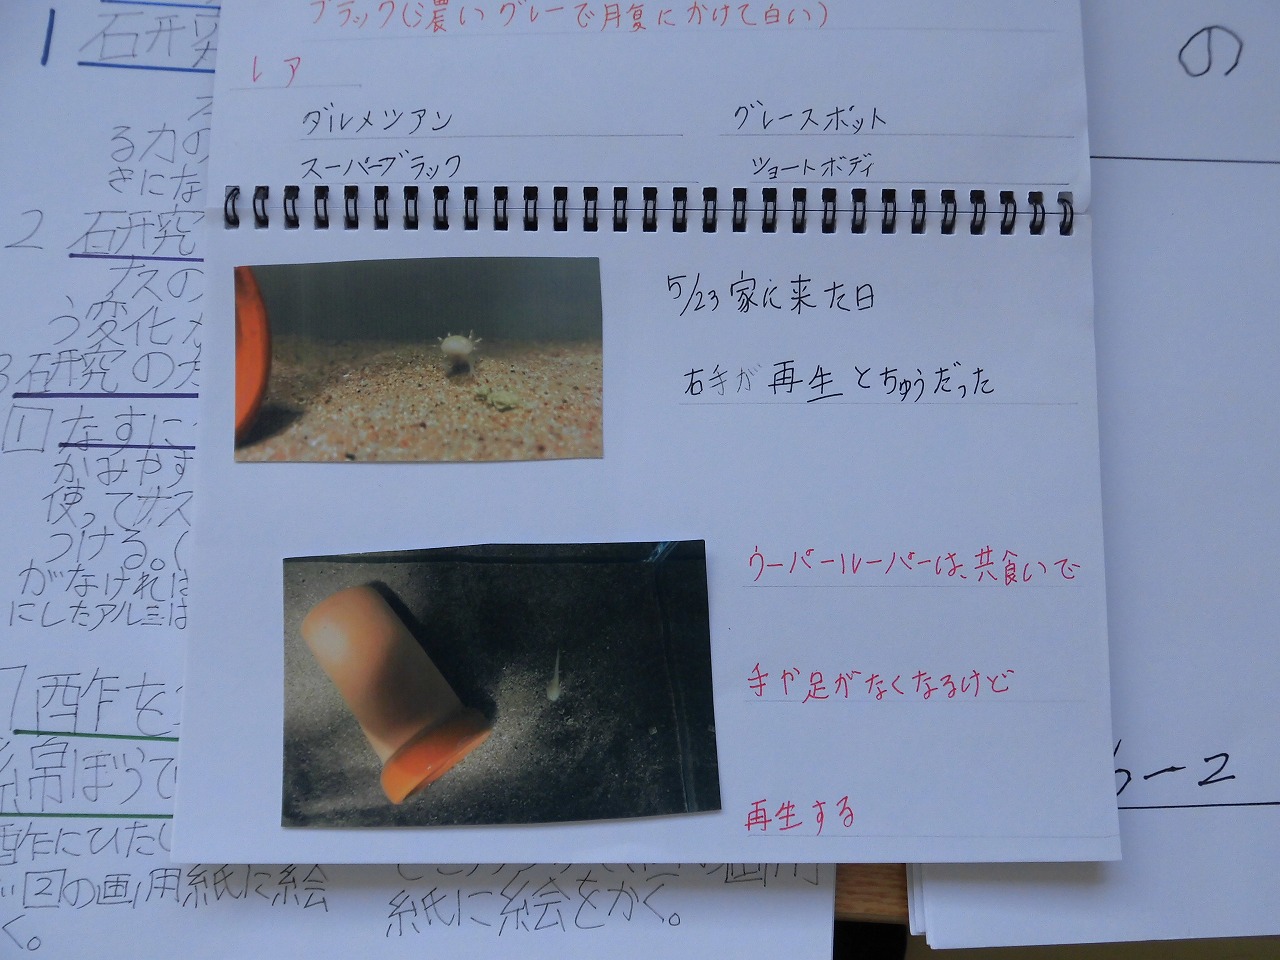 ブラック(濃いグレーで腹にかけて白い)
レア
ダルメツアン
グレースポット
スーパーブラック
ショートボディ
5/23 家に来た日
右手が再生とちゅうだった
ウーパールーパーは、共食いで
手や足がなくなるけど
再生する
1 石研究
る力の
きにな
2 石研究
ナスの
う変化
3 石研究のた
1 なすに
かみやす
使ってナス
つける。(
がなければ
にしたアルミは
酢を
綿ぼうで
酢にひた
2の画用紙に絵
く。
紙に絵をかく。
の
6-2